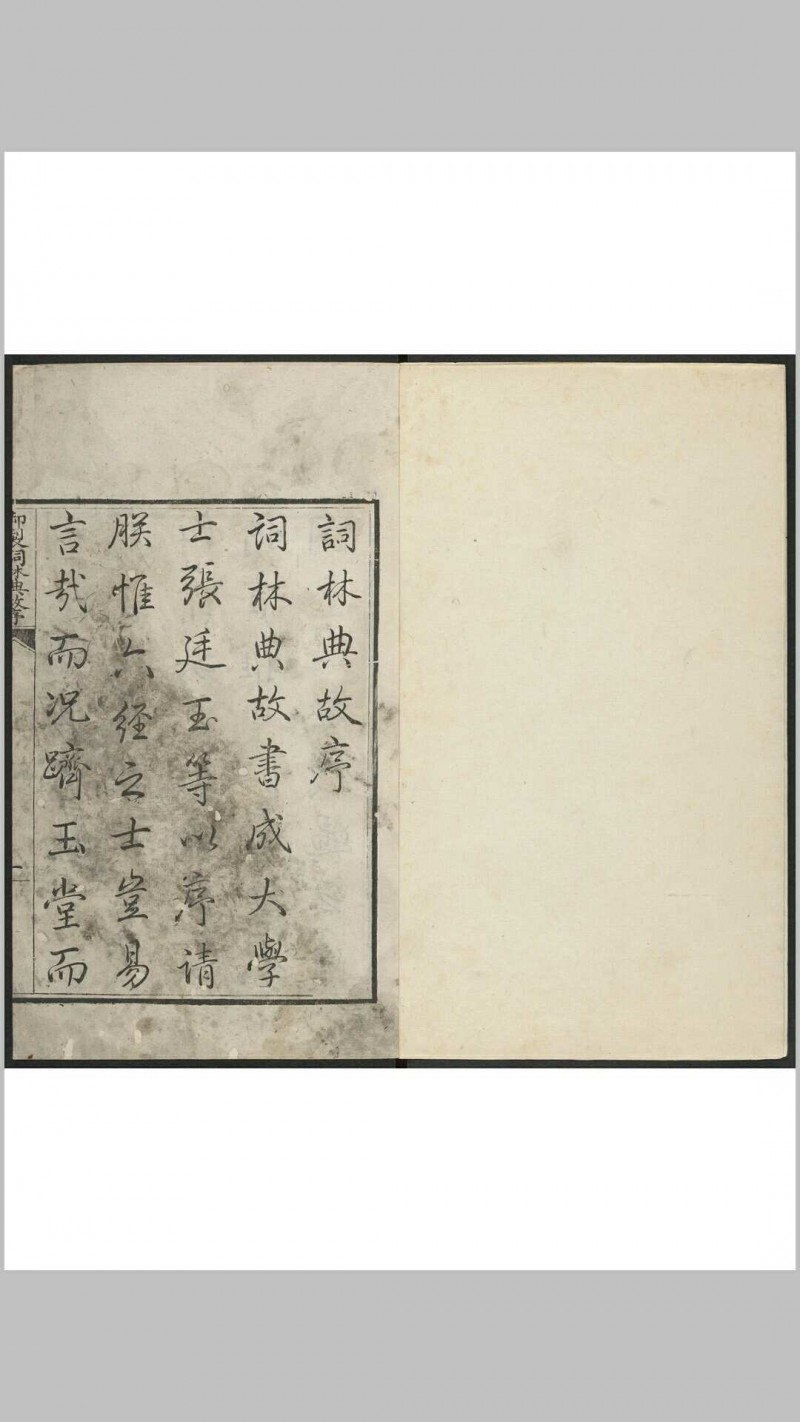 詞林典故序
詞林典故書成大學
士張廷玉等以序請
朕惟六經之士豈易
言哉而況躋玉堂而
御製詞林典故序